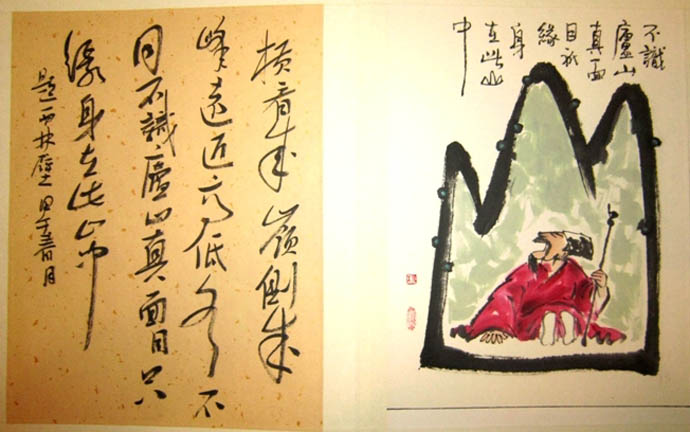 横看成嶺側成
峰遠近高低各不
同不識廬山真面目只
緣身在此山中
題西林壁甲午春月
不識
廬山
真面
目祇
緣
身
在此山
中